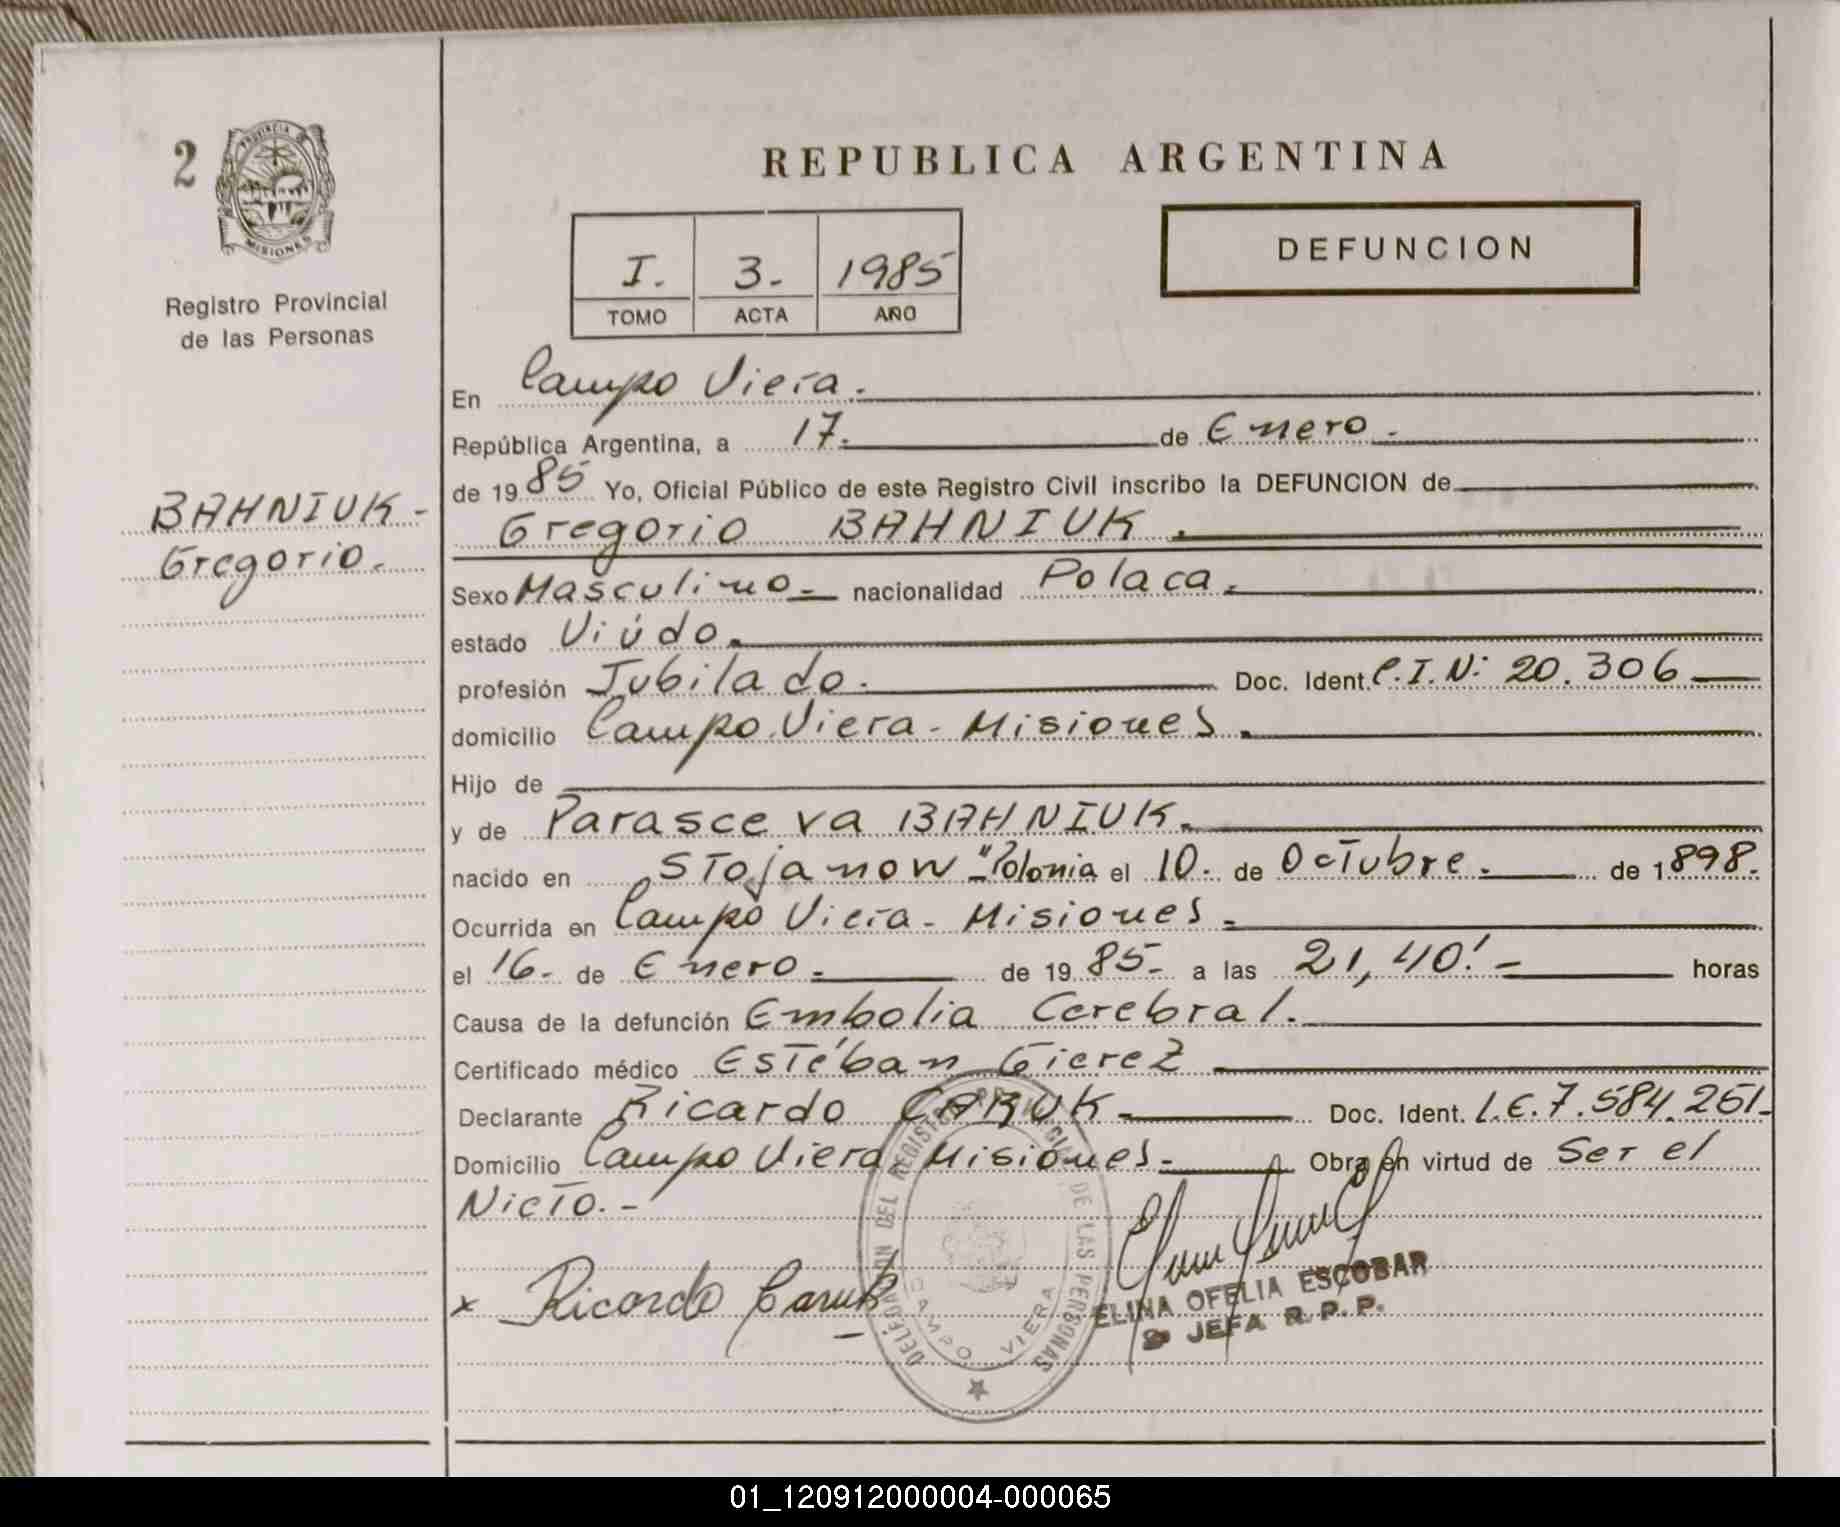 2
PROVINCIA DE
MISIONES
Registro Provincial
de las Personas
BAHNIUK -
Gregorio.
REPUBLICA ARGENTINA
DEFUNCION
I. 3. 1985
TOMO ACTA AÑO
En Campo Viera.
República Argentina, a 17. de Enero.
de 1985 Yo, Oficial Público de este Registro Civil inscribo la DEFUNCION de
Gregorio BAHNIUK.
Sexo Masculino. nacionalidad Polaca.
estado Viúdo.
profesión Jubilado. Doc. Ident. C.I.N: 20.306
domicilio Campo Viera - Misiones.
Hijo de
y de Parasceva BAHNIUK.
nacido en Stojanow "Polonia el 10. de Octubre. de 1898.
Ocurrida en Campo Viera - Misiones.
el 16. de Enero. de 1985. a las 21,40' horas
Causa de la defunción Embolia Cerebral.
Certificado médico Estéban Gierez
Declarante Ricardo CARUK Doc. Ident. L.E. 7.584.251-
Domicilio Campo Viera Misiones. Obra en virtud de Ser el
Nieto. -
x Ricardo Caruk
DELEGACION DEL REGISTRO PROVINCIAL DE LAS PERSONAS
CAMPO VIERA
ELINA OFELIA ESCOBAR
JEFA R.P.P.
01_120912000004-000065